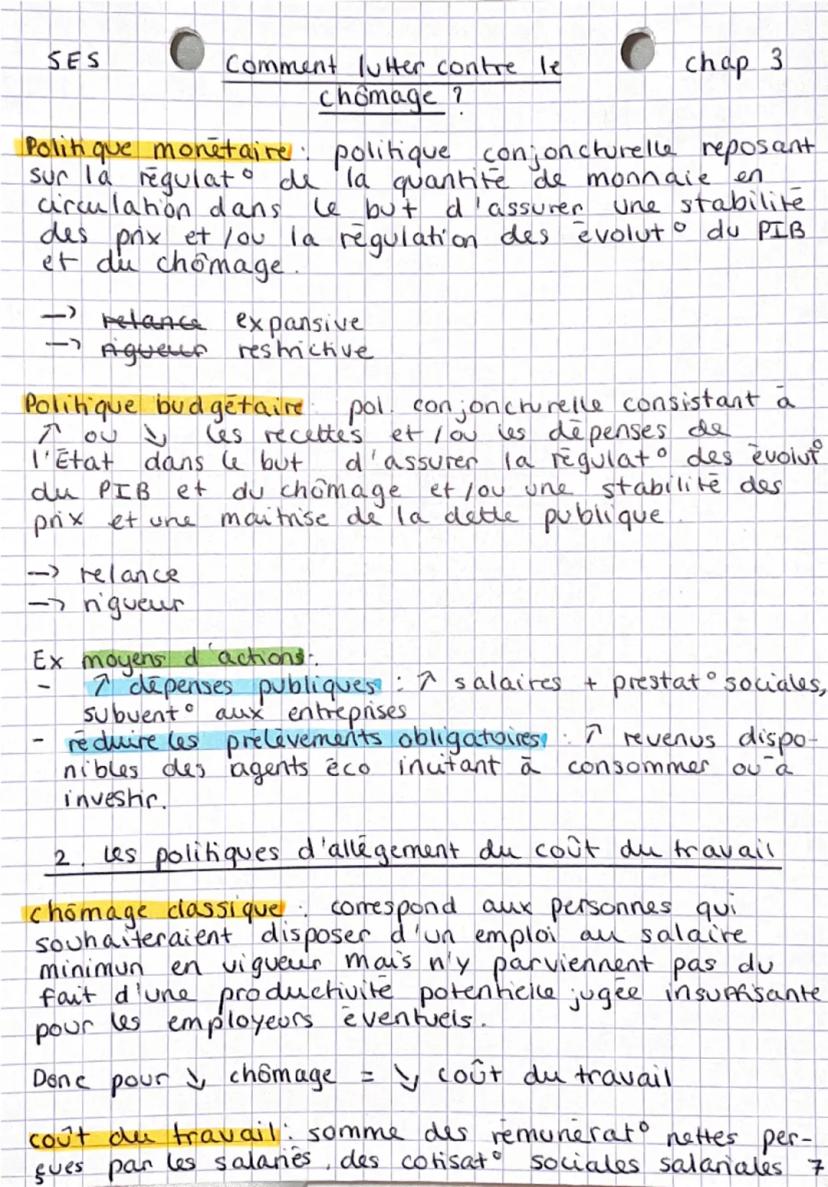 SES Comment lutter contre le chap 3
chômage ?
Politique monétaire : politique conjoncturelle reposant
sur la régulat° de la quantité de monnaie en
circulation dans le but d'assurer une stabilité
des prix et/ou la régulation des évolut° du PIB
et du chômage.
→ relance expansive
→ rigueur restrictive
Politique budgétaire : pol. conjoncturelle consistant à
↗ ou ↘ les recettes et/ou les dépenses de
l'État dans le but d'assurer la régulat° des évolut°
du PIB et du chômage et/ou une stabilité des
prix et une maitrise de la dette publique.
→ relance
→ rigueur
Ex moyens d'actions :
- ↗ dépenses publiques : ↗ salaires + prestat° sociales,
subvent° aux entreprises
- réduire les prélèvements obligatoires : ↗ revenus dispo-
nibles des agents éco incitant à consommer ou à
investir.
2. Les politiques d'allégement du coût du travail
chômage classique : correspond aux personnes qui
souhaiteraient disposer d'un emploi au salaire
minimun en vigueur mais n'y parviennent pas du
fait d'une productivité potentielle jugée insuffisante
pour les employeurs éventuels.
Donc pour ↘ chômage = ↘ coût du travail
coût du travail : somme des rémunérat° nettes per-
çues par les salariés, des cotisat° sociales salariales 7